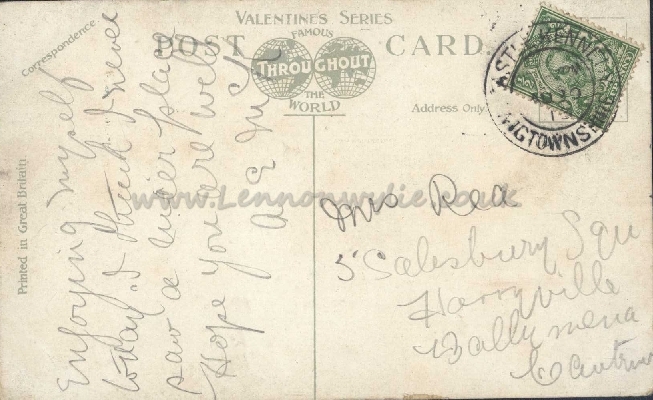 VALENTINES SERIES
POST CARD.
FAMOUS
THROUGHOUT
THE
WORLD
Correspondence
Address Only
Printed in Great Britain
Enjoying myself
today. I think I never
saw a nicer place
Hope you are well
www.Lennonwylie.co.uk
Mrs Rea
5 Salesbury Squ
Harryville
Ballymena
Co Antrim
KENNE
WIGTOWNSH